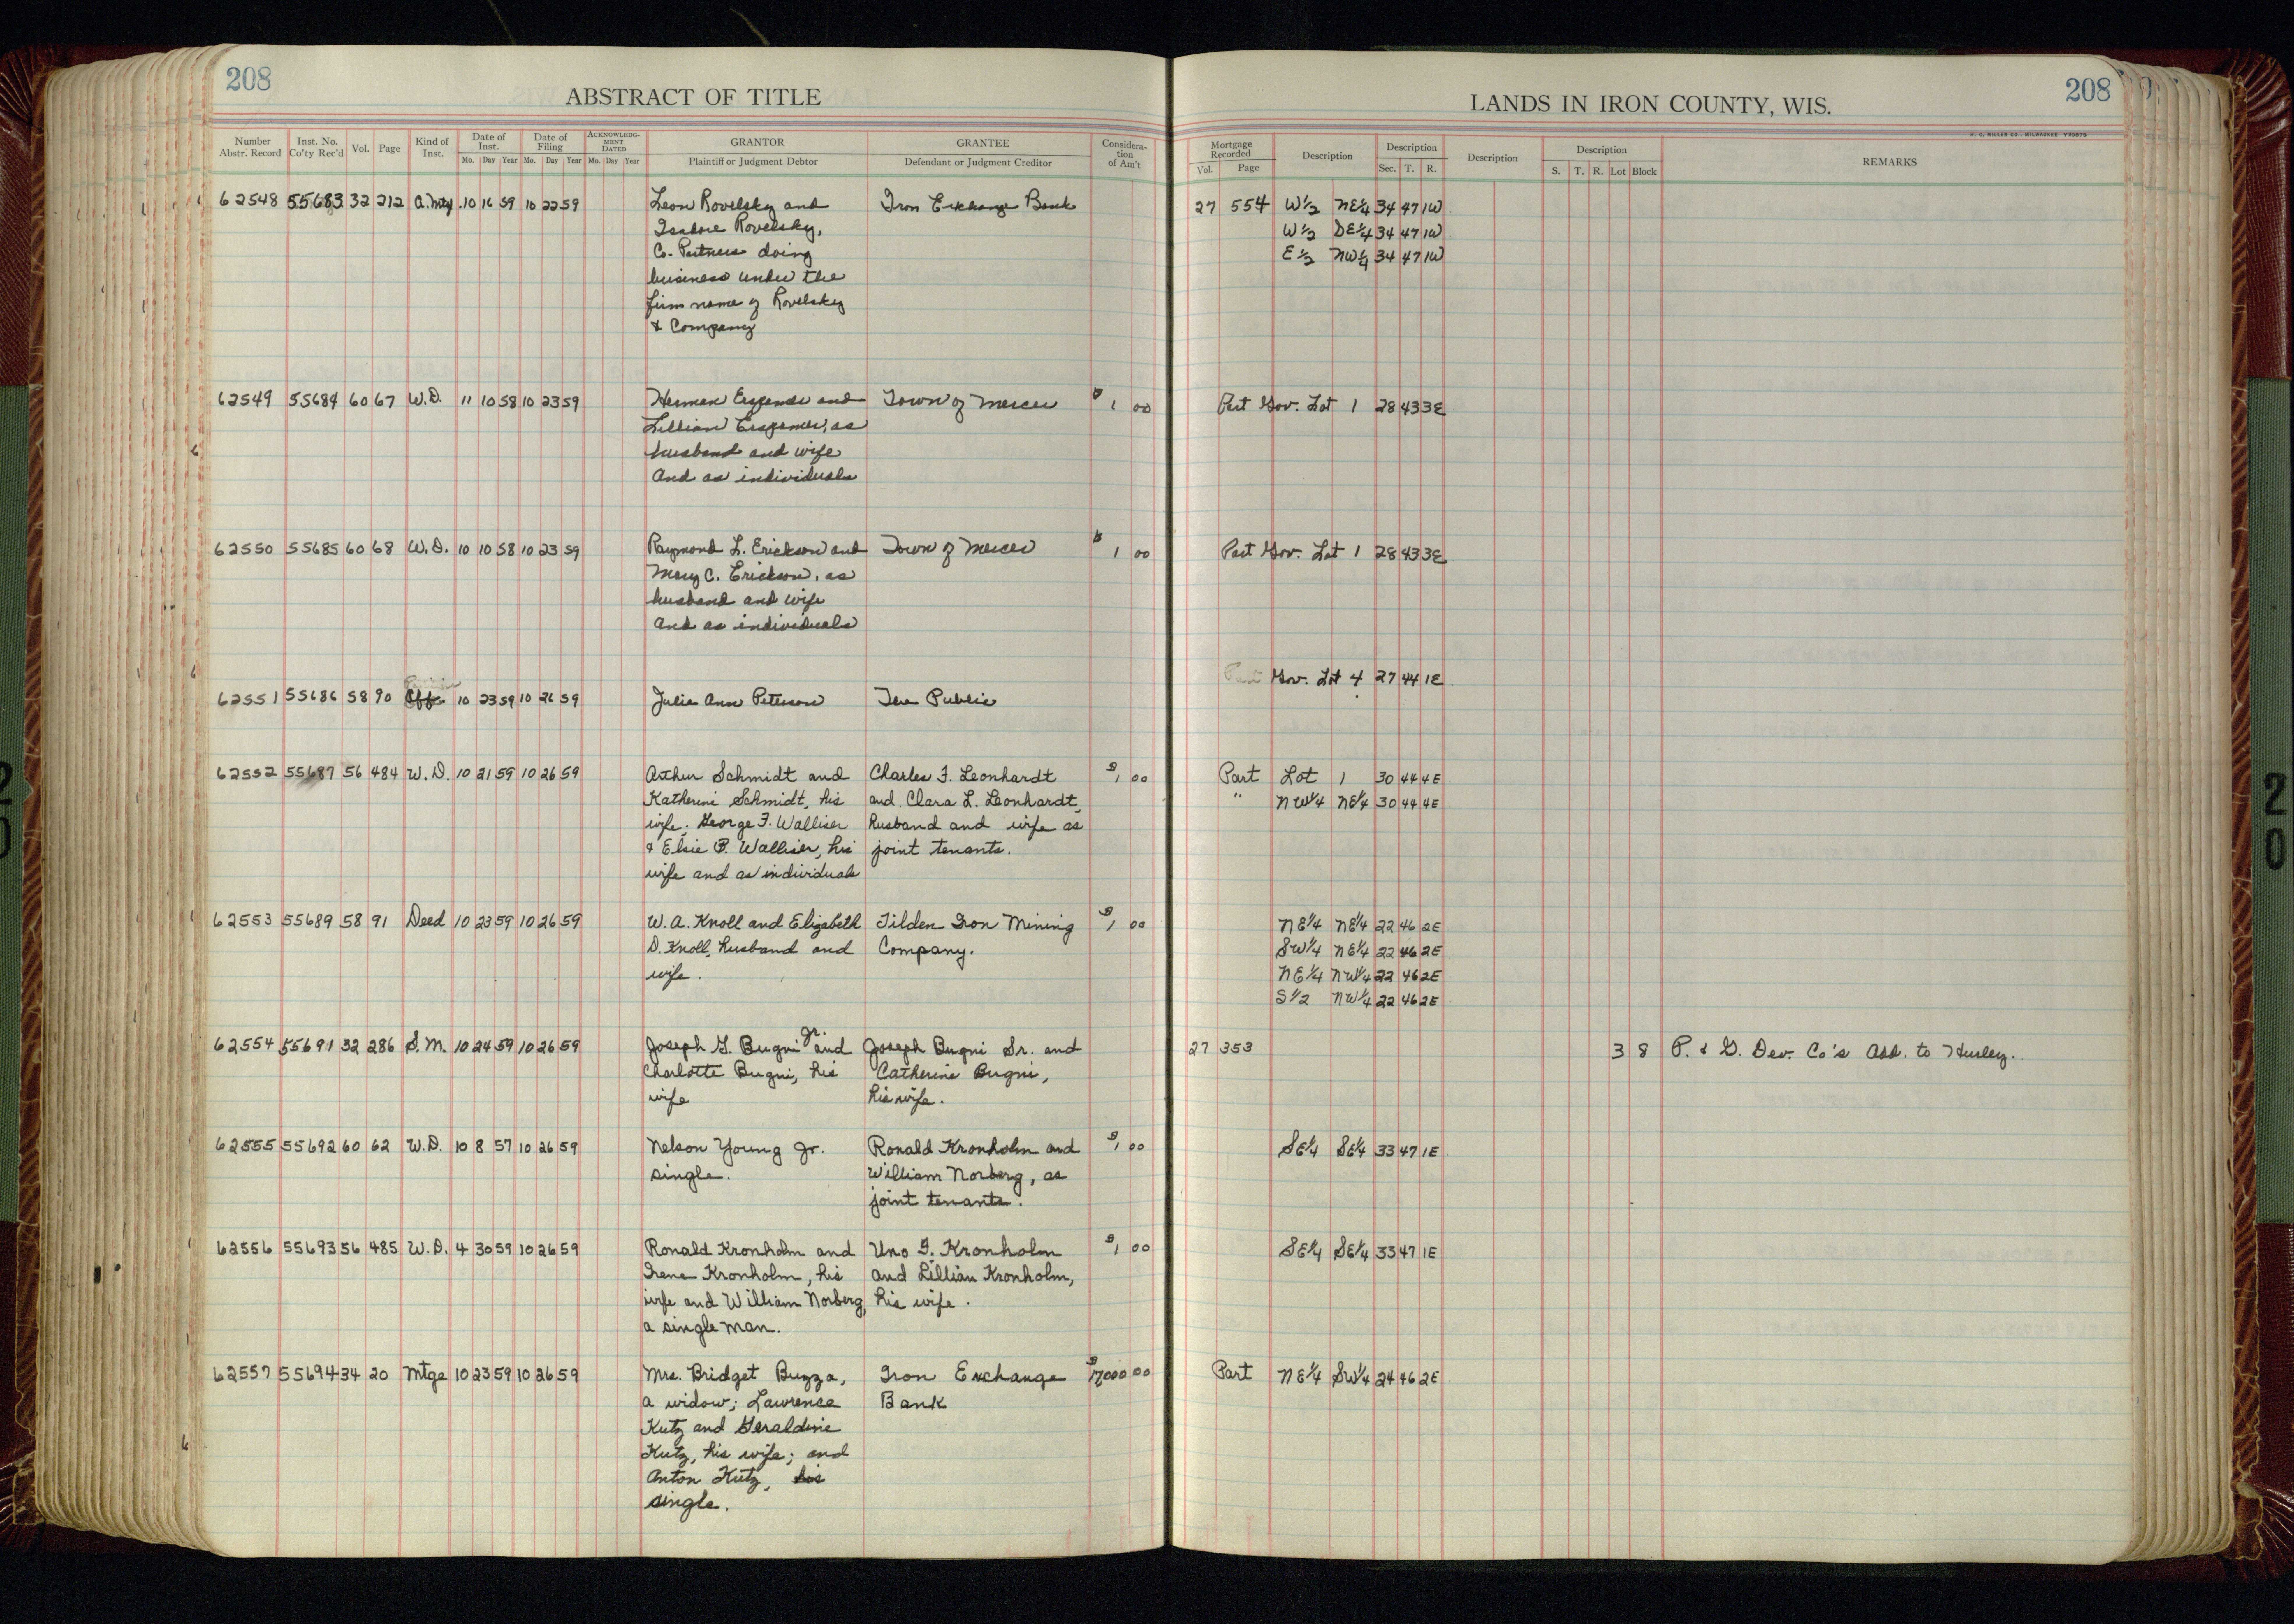 208
ABSTRACT OF TITLE
Number Abstr. Record Inst. No. Co'ty Rec'd Vol. Page Kind of Inst. Date of Inst. Mo. Day Year Date of Filing Mo. Day Year ACKNOWLEDGMENT DATED Mo. Day Year GRANTOR Plaintiff or Judgment Debtor GRANTEE Defendant or Judgment Creditor Consideration of Am't
LANDS IN IRON COUNTY, WIS.
208
H. C. MILLER CO., MILWAUKEE
Mortgage Recorded Vol. Page Description Description Sec. T. R. Description Description S. T. R. Lot Block REMARKS
62548 55683 32 212 A. Mtg. 10 16 59 10 22 59 Leon Rovelsky and Iron Exchange Bank 27 554 W½ NE¼ 34 47 1W
Isadore Rovelsky, W½ SE¼ 34 47 1W
Co-Partners doing E½ NW¼ 34 47 1W
business under the
firm name of Rovelsky
& Company
62549 55684 60 67 W.D. 11 10 58 10 23 59 Herman and Town of Mercer $1 00 Part Gov. Lot 1 28 43 3E
Lillian as
husband and wife
And as individuals
62550 55685 60 68 W.D. 10 10 58 10 23 59 Raymond L. Erickson and Town of Mercer $1 00 Part Gov. Lot 1 28 43 3E
Mary C. Erickson, as
husband and wife
And as individuals
Part Gov. Lot 4 27 44 1E
62551 55686 58 90 10 23 59 10 26 59 Julia Ann Peterson The Public
62552 55687 56 484 W.D. 10 21 59 10 26 59 Arthur Schmidt and Charles F. Leonhardt $1 00 Part Lot 1 30 44 4E
Katherine Schmidt, his and Clara L. Leonhardt, " NW¼ NE¼ 30 44 4E
wife; George F. Walliser husband and wife as
& Elsie P. Walliser, his joint tenants.
wife and as individuals
62553 55689 58 91 Deed 10 23 59 10 26 59 W. A. Knoll and Elizabeth Tilden Iron Mining $1 00 NE¼ NE¼ 22 46 2E
D. Knoll, husband and Company. SW¼ NE¼ 22 46 2E
wife. NE¼ NW¼ 22 46 2E
S½ NW¼ 22 46 2E
62554 55691 32 286 S.M. 10 24 59 10 26 59 Joseph G. Bugni Jr. and Joseph Bugni Sr. and 27 353 3 8 P. & G. Dev. Co's Add. to Hurley.
Charlotte Bugni, his Catherine Bugni,
wife his wife.
62555 55692 60 62 W.D. 10 8 57 10 26 59 Nelson Young Jr. Ronald Kronholm and $1 00 SE¼ SE¼ 33 47 1E
single. William Norberg, as
joint tenants.
62556 55693 56 485 W.D. 4 30 59 10 26 59 Ronald Kronholm and Uno G. Kronholm $1 00 SE¼ SE¼ 33 47 1E
Irene Kronholm, his and Lillian Kronholm,
wife and William Norberg, his wife.
a single man.
62557 55694 34 20 Mtge 10 23 59 10 26 59 Mrs. Bridget Buzza, Iron Exchange $17000 00 Part NE¼ SW¼ 24 46 2E
a widow; Lawrence Bank
Kutz and Geraldine
Kutz, his wife; and
Anton Kutz, his
single.